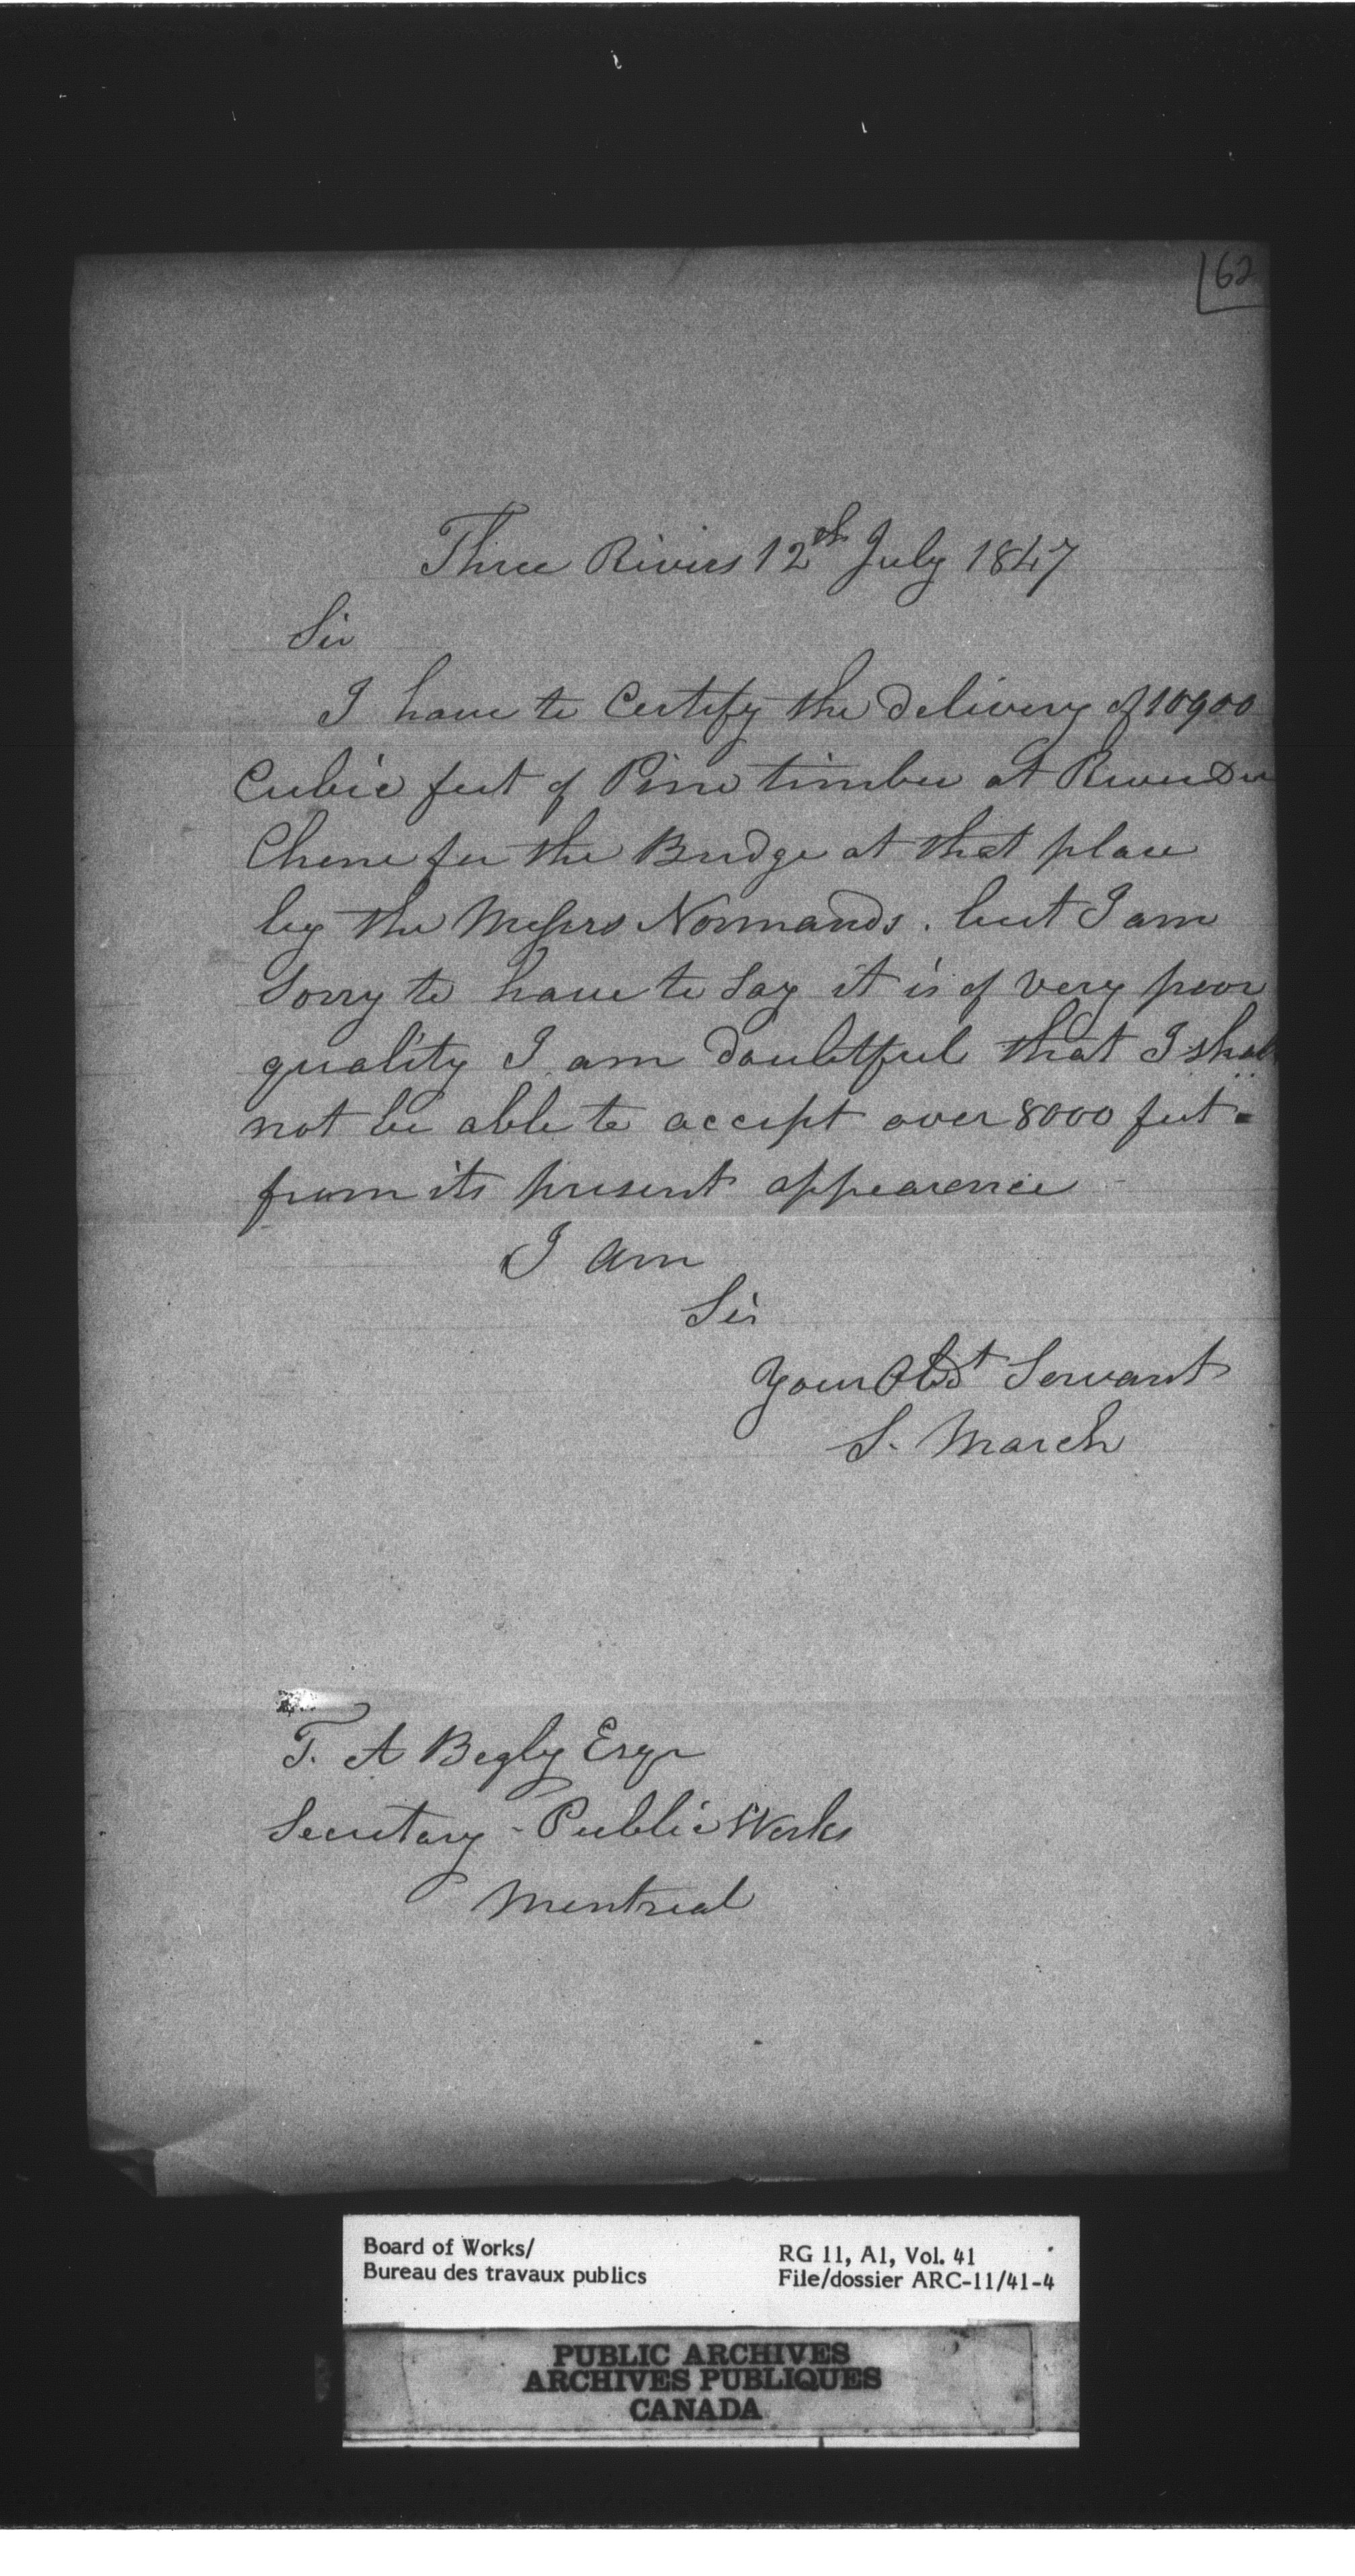 62
Three Rivers 12th July 1847
Sir
I have to Certify the delivery of 10900
Cubic feet of Pine timber at River Du
Chene for the Bridge at that place
by the Messrs Normands. but I am
Sorry to have to Say it is of very poor
quality I am doubtful that I shall
not be able to accept over 8000 feet
from its present appearence
I am
Sir
Your Obdt Servant
S. March
T. A Begly Esqr
Secretary - Public Works
Montreal
Board of Works/
Bureau des travaux publics
RG 11, A1, Vol. 41
File/dossier ARC-11/41-4
PUBLIC ARCHIVES
ARCHIVES PUBLIQUES
CANADA